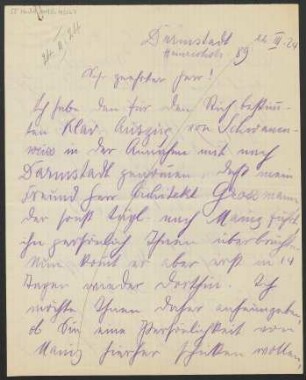 Darmstadt 22 III. 24
Heinrichstr. 89
Sehr geehrter Herr!
Ich habe den für den Rich bestimm-
ten Klav. Auszug von Schwanen-
weiss in der Annahme mit nach
Darmstadt genommen, dass mein
Freund Herr Architekt Grossmann
der sonst tägl. nach Mainz fährt
ihn persönlich Ihnen überbrächte.
Nun kommt er aber erst in 14
Tagen wieder dorthin. Ich
möchte Ihnen daher anheimgeben,
ob Sie eine Persönlichkeit von
Mainz hierher schicken wollen